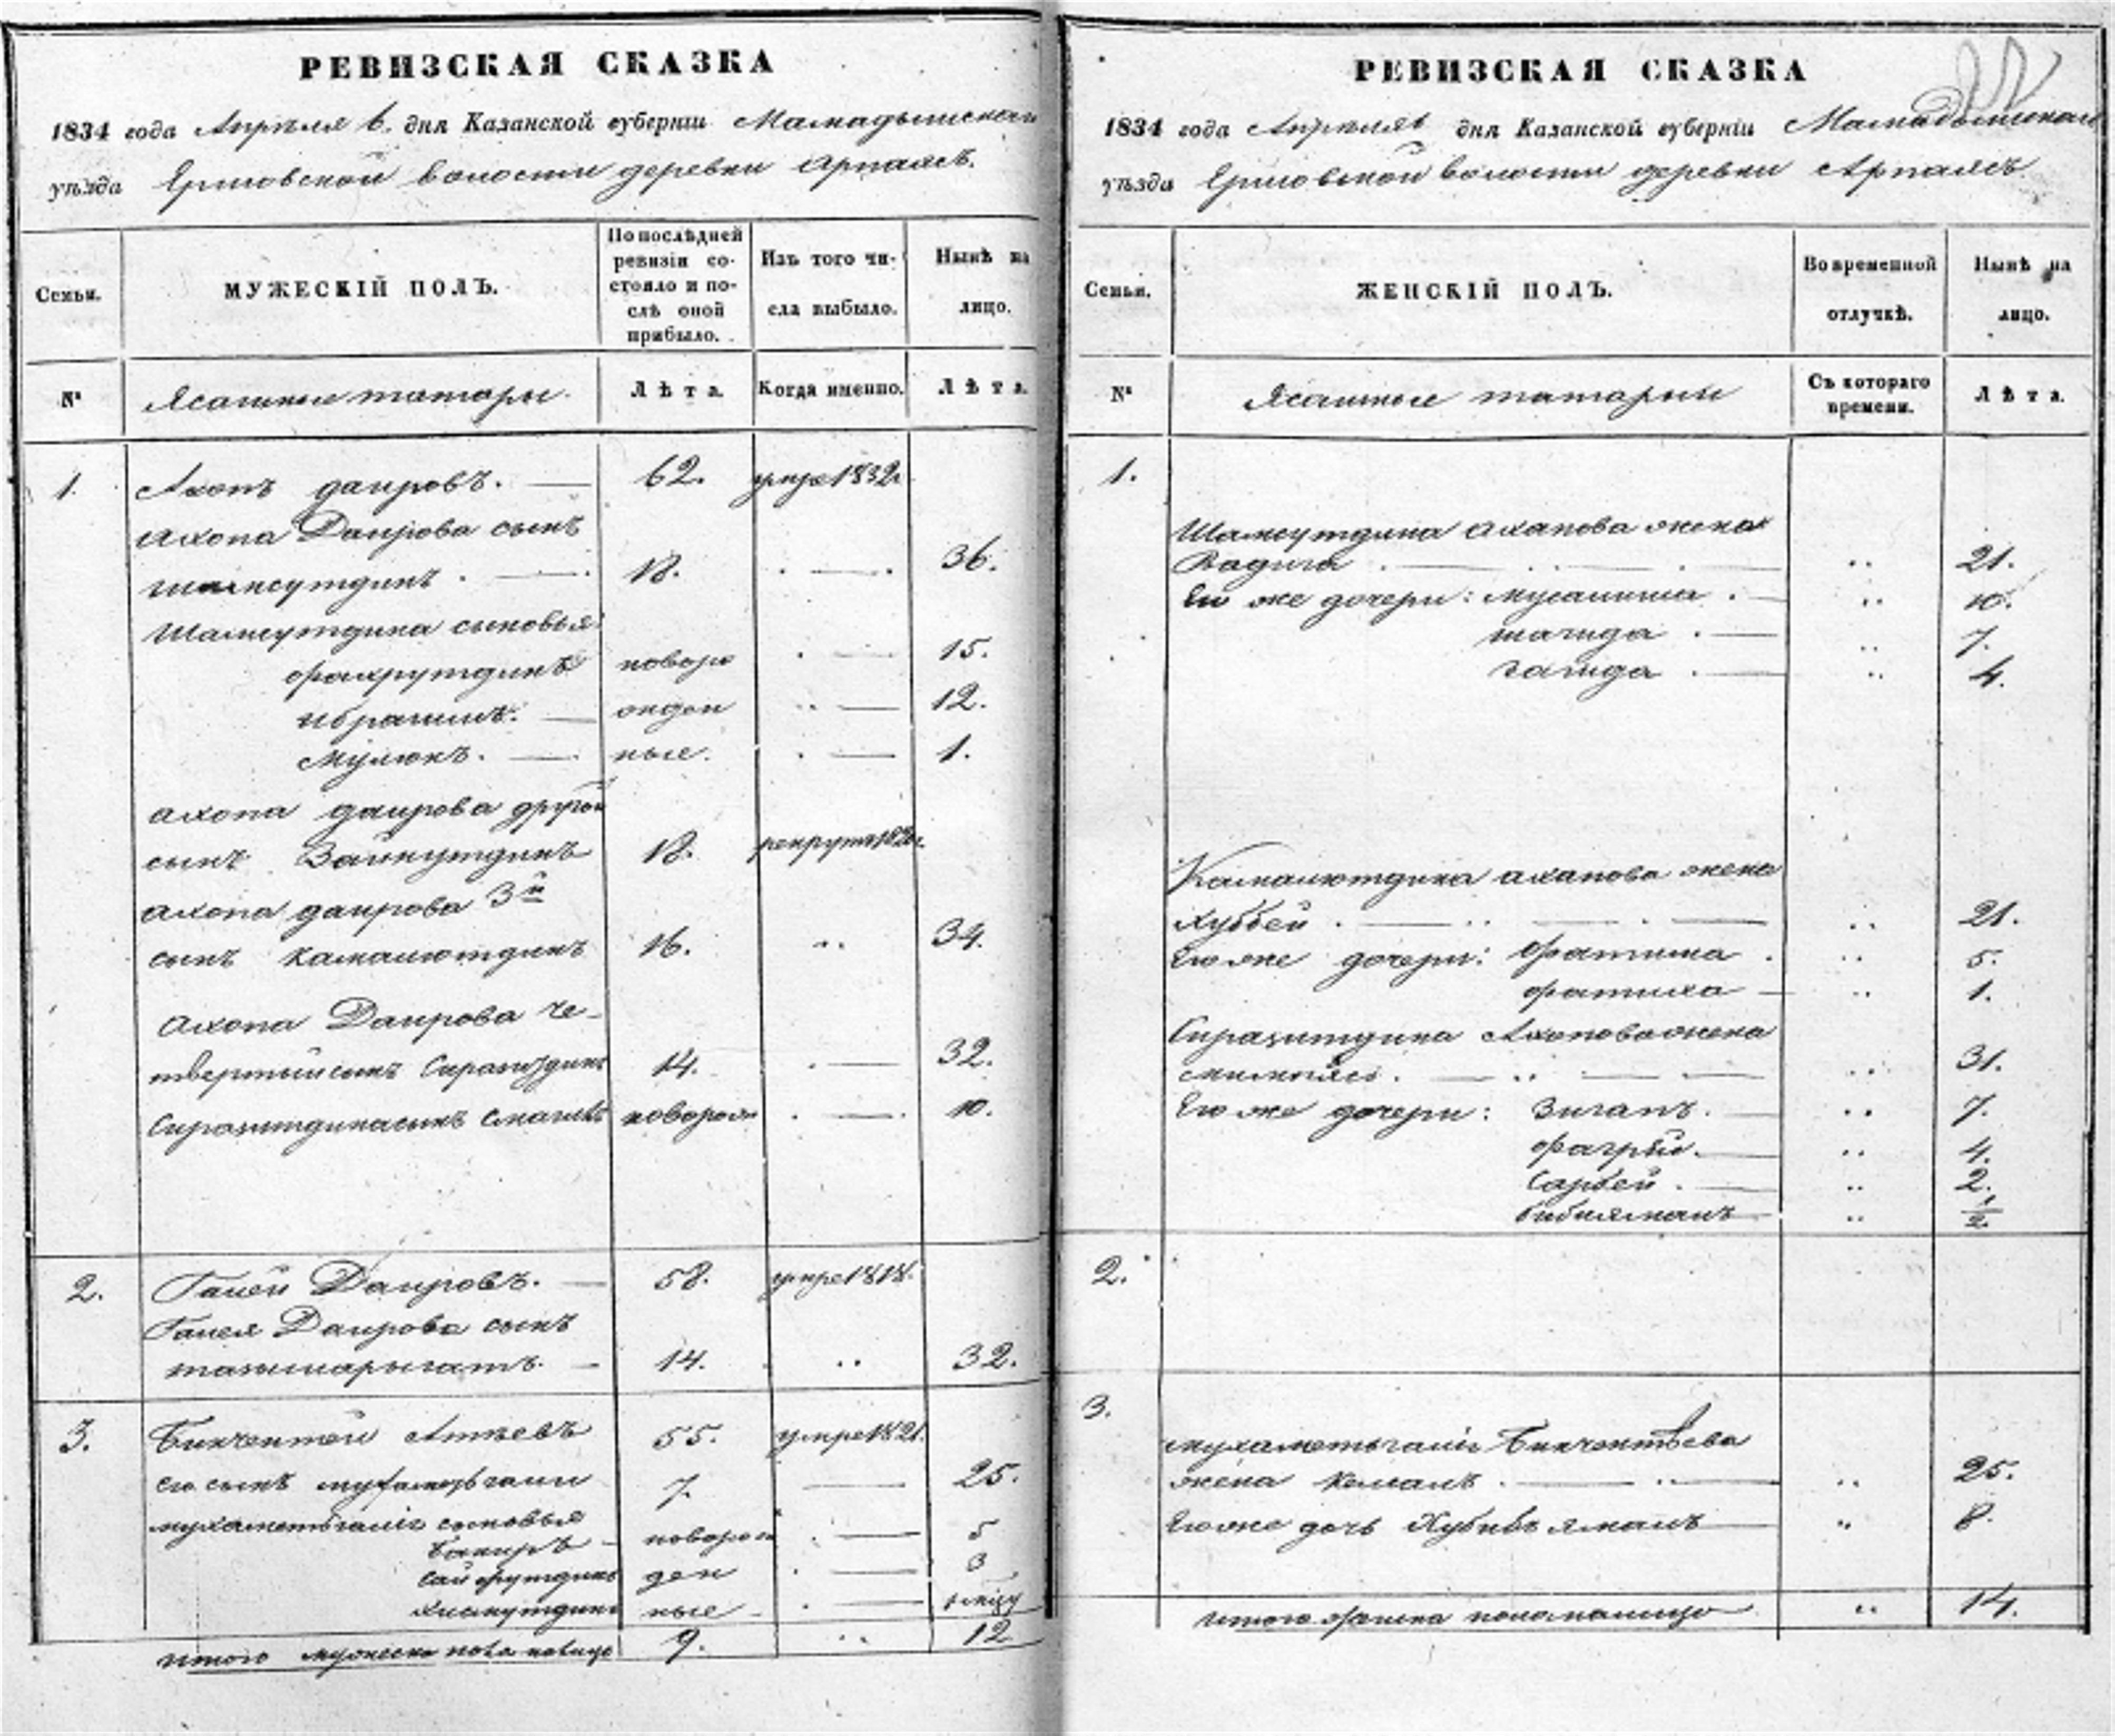 РЕВИЗСКАЯ СКАЗКА
1834 года Апреля 6. дня Казанской губерніи Мамадышскаго
уѣзда Ершовской волости деревни Арпаясъ.
Семьи.
МУЖЕСКІЙ ПОЛЪ.
По послѣдней
ревизіи со-
стояло и по-
слѣ оной
прибыло.
Изъ того чи-
сла выбыло.
Нынѣ на
лицо.
№
Ясашные татары.
Лѣта.
Когда именно.
Лѣта.
1. Ахопъ даировъ. 62. умре 1832.
Ахопа Даирова сынъ
шамсутдинъ. 18. 36.
Шамсутдина сыновья:
фахрутдинъ новоро 15.
Ибрагимъ. жден 12.
Мулюкъ. ные. 1.
Ахопа даирова другой
сынъ Зайнутдинъ 18.
Ахопа даирова 3й
сынъ Камалютдинъ 16. 34.
Ахопа Даирова че-
твертый сынъ 14. 32.
сынъ новорож 10.
2. Галей Даировъ. 58. умре 1818.
Галея Даирова сынъ
14. 32.
3. Бикчентей Атѣевъ 55. умре 1821.
его сынъ 7. 25.
мухаметьгалія сыновья
Бакиръ новорож 5
сайфутдинъ ден 3
ные
итого мужеска пола налицо 9. 12
РЕВИЗСКАЯ СКАЗКА
1834 года Апреля 6 дня Казанской губерніи Мамадышскаго
уѣзда Ершовской волости деревни Арпаясъ
Семьи.
ЖЕНСКІЙ ПОЛЪ.
Во временной
отлучкѣ.
Нынѣ на
лицо.
№
Ясашные татарки
Съ котораго
времени.
Лѣта.
1.
Шамсутдина Ахапова жена
Вадига 21.
Его же дочери: 10.
шагида 7.
гагида 4.
Камалютдина ахапова жена
Хуббей 21.
Его же дочери: Фатима 5.
фатиха 1.
Ахопова жена
31.
Его же дочери: Зиганъ. 7.
фагрій. 4.
Сарбей. 2.
бибиямалъ ½.
2.
3.
мухаметьгалія Бикчентѣева
жена 25.
Его же дочь Хубибъ ямалъ 8.
итого женска пола налицо 14.